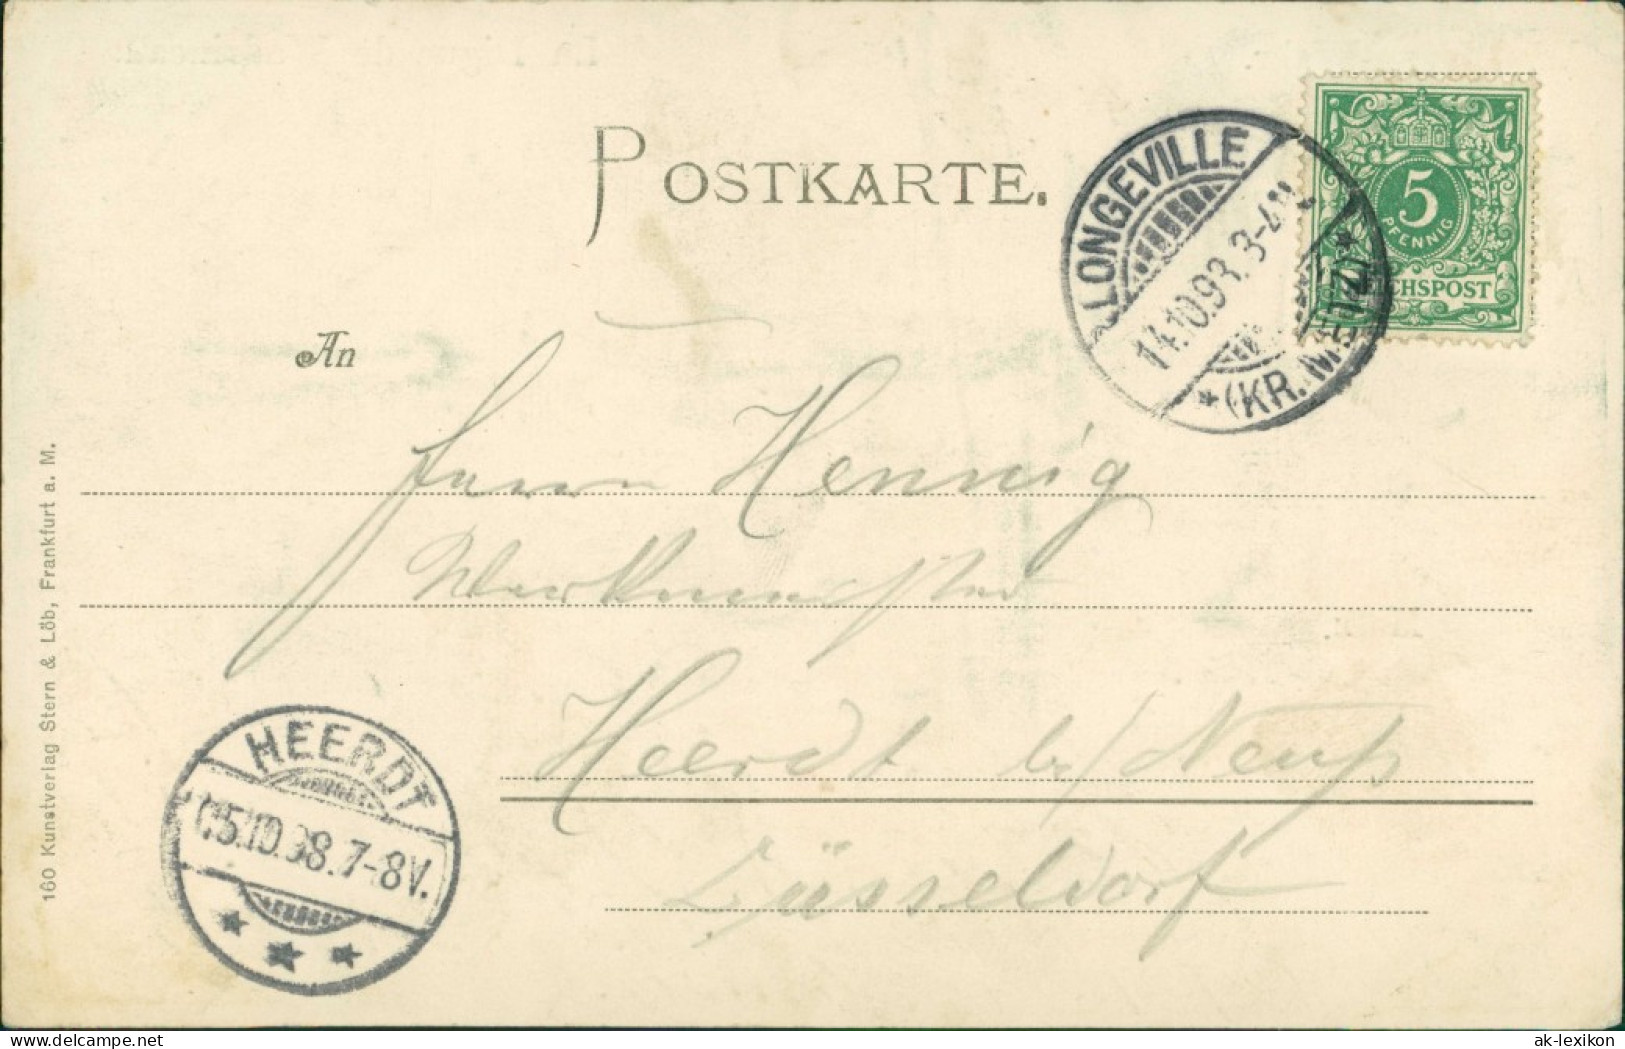 POSTKARTE.
LONGEVILLE
14.10.98. 3-4N
* (KR. METZ) *
5
PFENNIG
REICHSPOST
An
Herrn Hennig
Werkmeister
Heerdt b/ Neuß
Düsseldorf
HEERDT
15.10.98. 7-8V.
160 Kunstverlag Stern & Löb, Frankfurt a. M.
www.delcampe.net
ak-lexikon